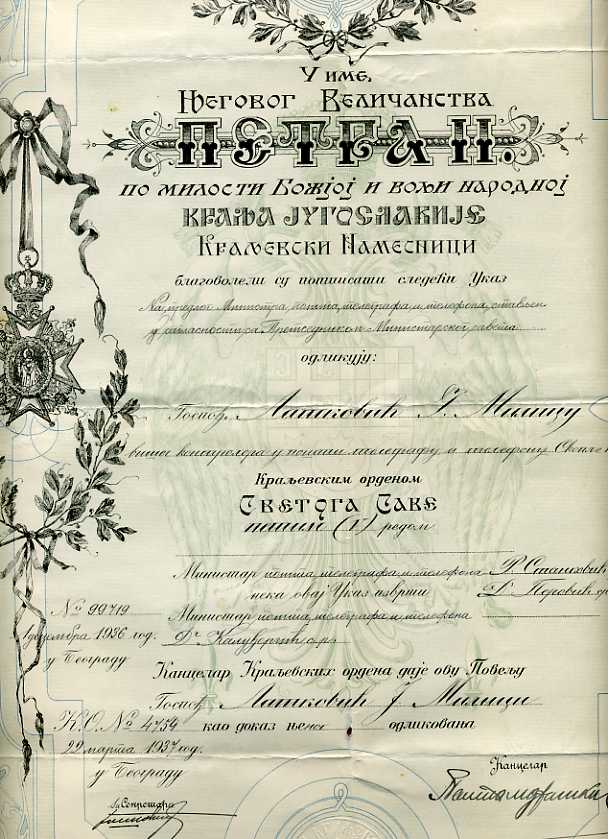 У име,
Његовог Величанства
ПЕТРА II.
по милости Божјој и вољи народној
КРАЉА ЈУГОСЛАВИЈЕ
Краљевски Намесници
благоволели су потписати следећи Указ
На предлог Министра пошта, телеграфа и телефона, стављен
у сагласности са Претседником Министарског савета
одликују:
Госпођ. Латковић Ј. Милицу
вишег контролора у пошти, телеграфу и телефону Скопље
Краљевским орденом
Светога Саве
петим (V) редом
Министар пошта, телеграфа и телефона
нека овај Указ изврши
№ 99719
Министар пошта, телеграфа и телефона
1 децембра 1936 год.
Др Калуђерчић с.р.
у Београду
Канцелар Краљевских ордена даје ову Повељу
Госпођ Латковић Ј Милици
К.О. № 4754 као доказ њеног одликовања
29 марта 1937 год.
у Београду
Канцелар
Секретар